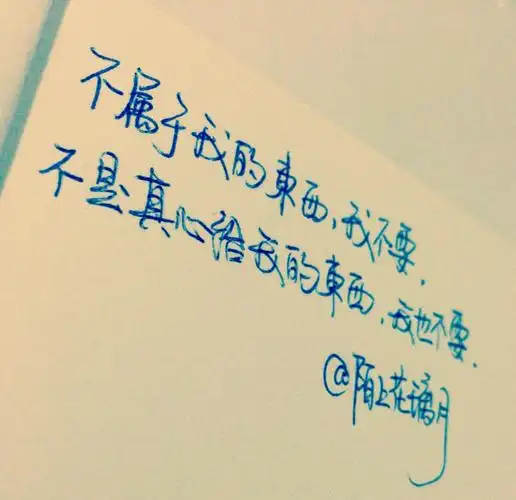 不属于我的東西,我不要.
不是真心给我的東西,我也不要.
@陌上花璃月